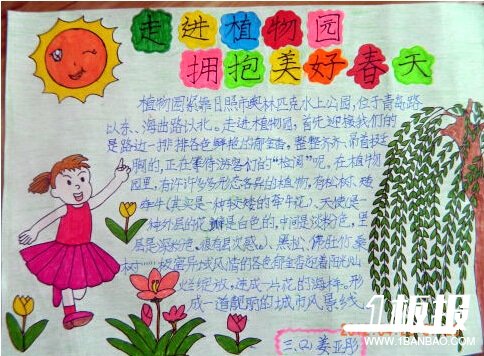 走进植物园
拥抱美好春天
植物园紧靠日照市奥林匹克水上公园,位于青岛路
以东、海曲路以北。走进植物园,首先迎接我们的
是路边一排排各色鲜艳的郁金香,整整齐齐、昂首挺
胸的,正在等待游客们的“检阅”呢。在植物
园里,有许许多多形态各异的植物,有松树、矮
牵牛(其实是一种较矮的牵牛花)、天使(是
一种外层的花瓣是白色的,中间是淡粉色,里
层是深粉色,很有层次感。)、黑松、佛肚竹、桑
树……极富异域风情的各色郁金香迎着阳光灿
烂绽放,连成一片花的海洋。形
成一道靓丽的城市风景线。
三.(2) 姜亚彤
1板报
WWW.1BANBAO.COM